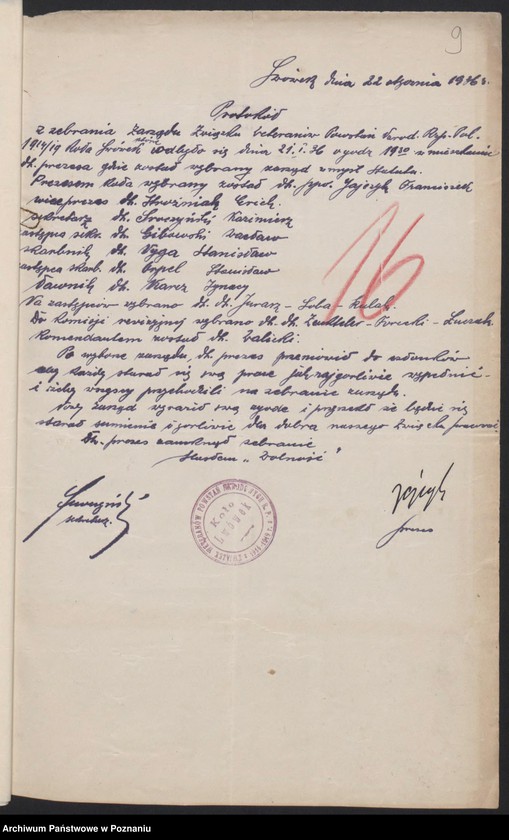 9
Lwówek dnia 22 stycznia 1936 r.
Protokół
z zebrania Zarządu Związku Weteranów Powstań Narod. Rzp. Pol.
1914/19 Koła Lwówek odbyło się dnia 21. I. 36 o godz 19³⁰ w mieszkaniu
dh. prezesa gdzie został wybrany zarząd w myśl Statutu.
Prezesem Koła wybrany został dh. Jajczyk Franciszek
wiceprezes dh. Stroźniak Erich.
sekretarz dh. Kazimierz
zastępca sekr. dh. Gibowski Wacław
skarbnik dh. Wyga Stanisław
zastępca skarb. dh. Orpel Stanisław
ławnik dh. Karcz Ignacy
Na zastępców wybrano dh. dh. Jurasz - Kulak.
Do Komisji rewizyjnej wybrano dh. dh. - Torecki -
Komendantem został dh. Walicki.
Po wyborze zarządu, dh. prezes przemówił do członków
aby każdy starał się swą pracę jak najgorliwiej wypełnić
i żeby wszyscy przychodzili na zebranie zarządu.
Nowy zarząd wyraził swą zgodę i przyrzekł że będzie się
starał sumienie i gorliwie dla dobra naszego Związku pracować.
Dh. prezes zamknął zebranie
hasłem „Wolność"
16
sekretarz.
Jajczyk
prezes
Koło
Lwówek
Archiwum Państwowe w Poznaniu